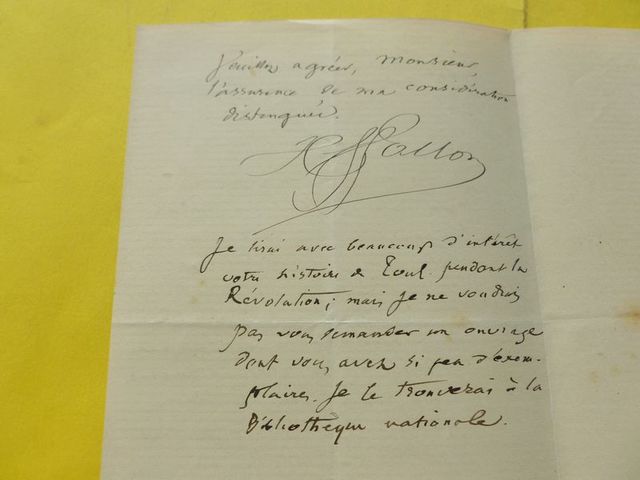 Veuillez agréer, Monsieur,
l'assurance de ma considération
distinguée.
H Wallon
Je lirai avec beaucoup d'intérêt
votre histoire de Toul pendant la
Révolution ; mais je ne voudrais
pas vous demander un ouvrage
dont vous avez si peu d'exem-
plaires. Je le trouverai à la
Bibliothèque nationale.